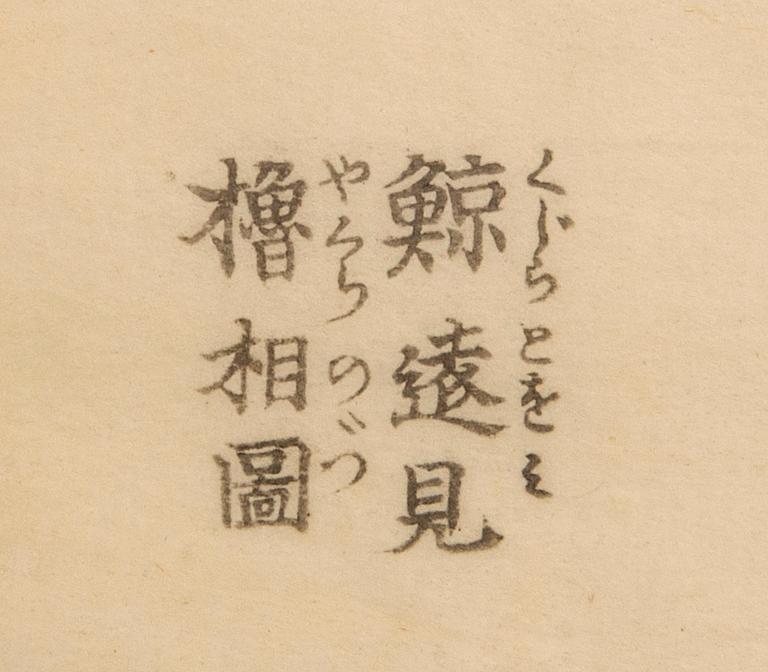 くじらとをミ
鯨遠見
やぐらのづ
櫓相圖